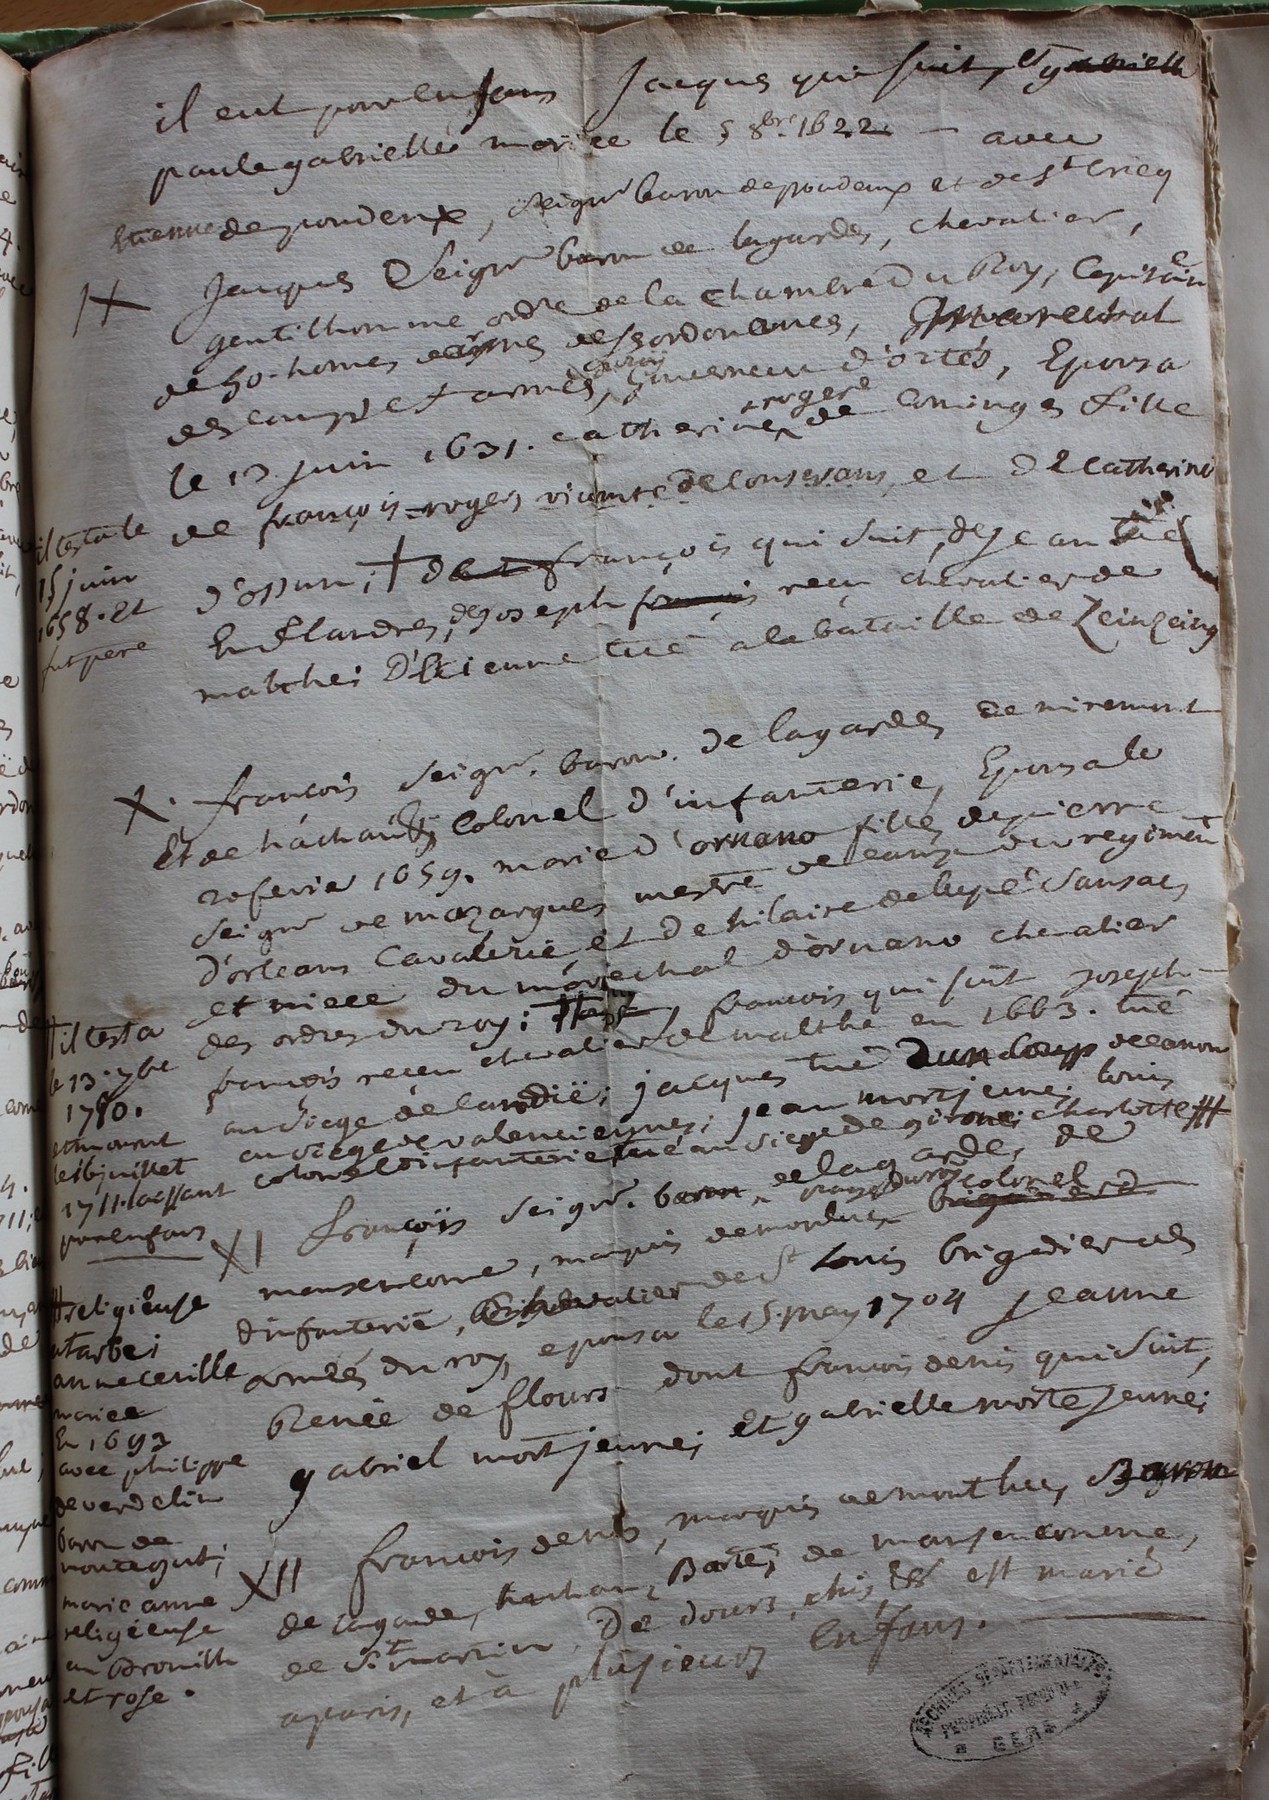 il eut pour enfans Jacques qui suit, et gabrielle
paule gabrielle mariée le 5 8bre 1622 — avec
Etienne de poudenx, seigr baron de poudenx et de St Cricq
IX Jacques Seigr baron de lagardes, chevalier,
gentilhomme ordre de la chambre du Roy, Capitaine
de 50. homes d'armes des ordonences, marechal
des camps et armées du roy, gouverneur d'ortés, Epousa
le 13 juin 1631. catherine roger de Cominges fille
de françois-roger, vicomte de Conserans, et de Catherine
d'ossun; † françois qui suit, de jean tué
En flandres, de joseph françois reçu chevalier de
malthe; d'Etienne tué a la bataille de Zeinzeing
il testa le
15 juin
1658. et
fut pere
X. françois seigr. baron. de lagardes de miremont
Et de hachan, Colonel d'infanterie, Epousa le
20 fevrier 1659. marie d'ornano fille de pierre
seigr de mazargues mestre de camp du regiment
d'orleans Cavalerie, et de hilaire de lupé Sansac
et niece du maréchal d'ornano chevalier
des ordres du roy; françois qui suit joseph-
françois reçeu chevalier de malthe en 1663. tué
au siege de Candïe; jacques tué d'un coup de canon
au siege de valenciennes; jean mort jeune; louis
colonel d'infanterie tué au siege de gironne; charlotte #
# il testa
le 13. 7bre
1710.
et mourut
le 16 juillet
1711. laissant
pour enfans
XI françois seigr. baron de lagardes, de
mansencome, marquis de montluc colonel brigadier d
d'infanterie, chevalier de St Louis brigadier des
armées du roy, epousa le 15. may 1704 jeanne
Renée de flours dont francois denis qui suit,
gabriel mort jeune; et gabrielle morte jeune;
# religieuse
a tarbe;
anne cecille
mariée
En 1693
avec philippe
de verdelin
baron de
montegut;
marie anne
religieuse
au Brouilh
et rose.
XII francois denis, marquis de montluc, Baron
de lagarde, hachan, Barte, de mansencomme,
de St martin, De dours, chis, &c est marié
a paris, et à plusieurs Enfans.
ARCHIVES DÉPARTEMENTALES
PROPRIÉTÉ PUBLIQUE
GERS